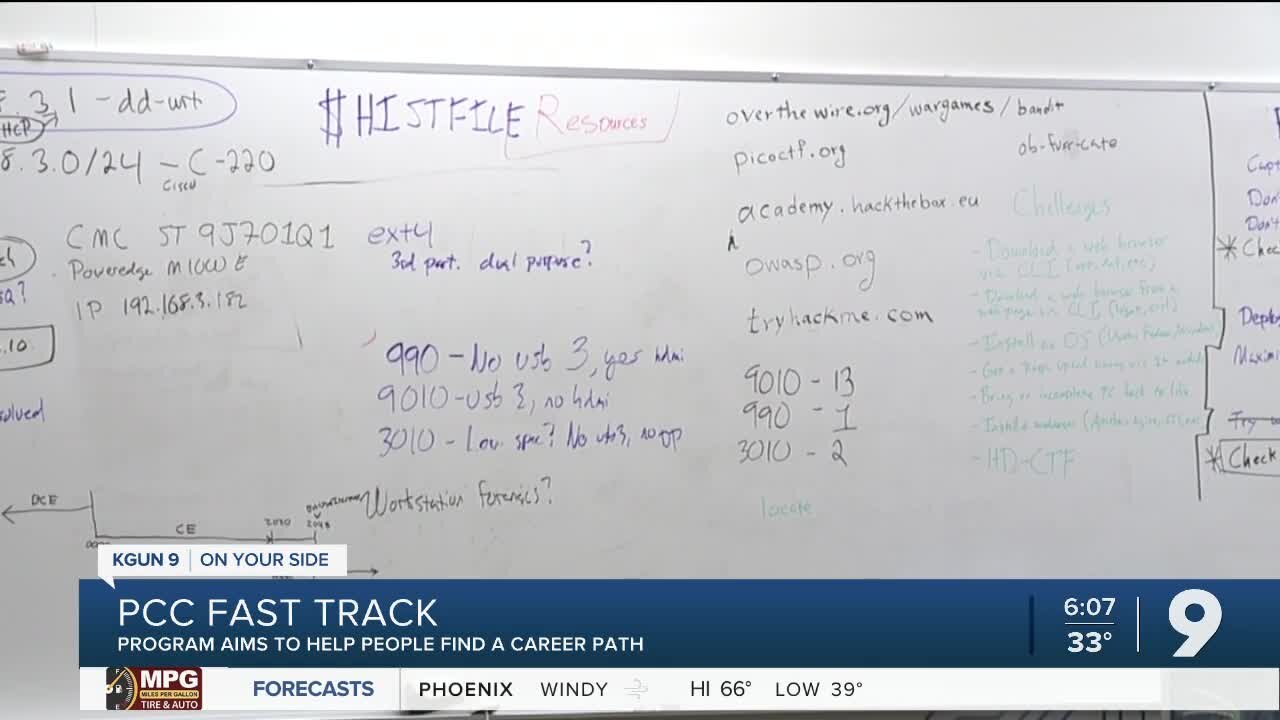 .3.1 -dd-wrt
HCP
8.3.0/24 - C-220
Cisco
$HISTFILE Resources
CMC ST 9J701Q1
Poweredge M1000E
IP 192.168.3.182
.10
solved
ext4
3rd part. dual purpose?
990 - No usb 3, yes hdmi
9010 - usb 3, no hdmi
3010 - Low spec? No usb3, no DP
Workstation forensics?
DCE
CE
overthewire.org/wargames/bandit
picoctf.org
ob-fusc-cate
academy.hackthebox.eu
owasp.org
tryhackme.com
9010 - 13
990 - 1
3010 - 2
locate
Challenges
- Download a web browser
via CLI
- Download a web browser from a
web page via CLI
- Install an OS
- Bring an incomplete PC back to life
- HD-CTF
Don't
* Chec
Deplo
Maxim
Try
* Check
KGUN 9 | ON YOUR SIDE
PCC FAST TRACK
PROGRAM AIMS TO HELP PEOPLE FIND A CAREER PATH
6:07
33°
9
MPG
MILES PER GALLON
TIRE & AUTO
FORECASTS
PHOENIX WINDY HI 66° LOW 39°